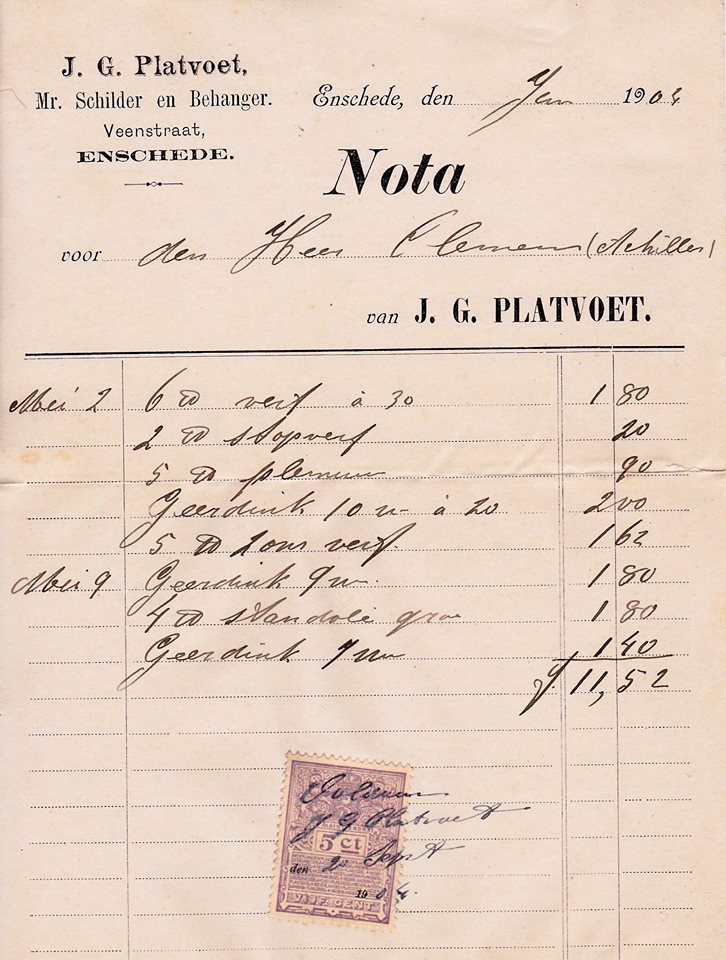 J. G. Platvoet,
Mr. Schilder en Behanger.
Veenstraat,
ENSCHEDE.
Enschede, den Jan 1904
Nota
voor den Heer Clemens (Achilles)
van J. G. PLATVOET.
Mei 2 6 ℔ verf à 30 1 80
2 ℔ stopverf 20
5 ℔ plemuur 90
Geerdink 10 u à 20 2 00
5 ℔ 2 ons verf 1 62
Mei 9 Geerdink 9 u 1 80
4 ℔ standolie 1 80
Geerdink 7 uur 1 40
f. 11,52
Voldaan
J G Platvoet
5 ct
den 20 Sept
1904
VIJF CENT